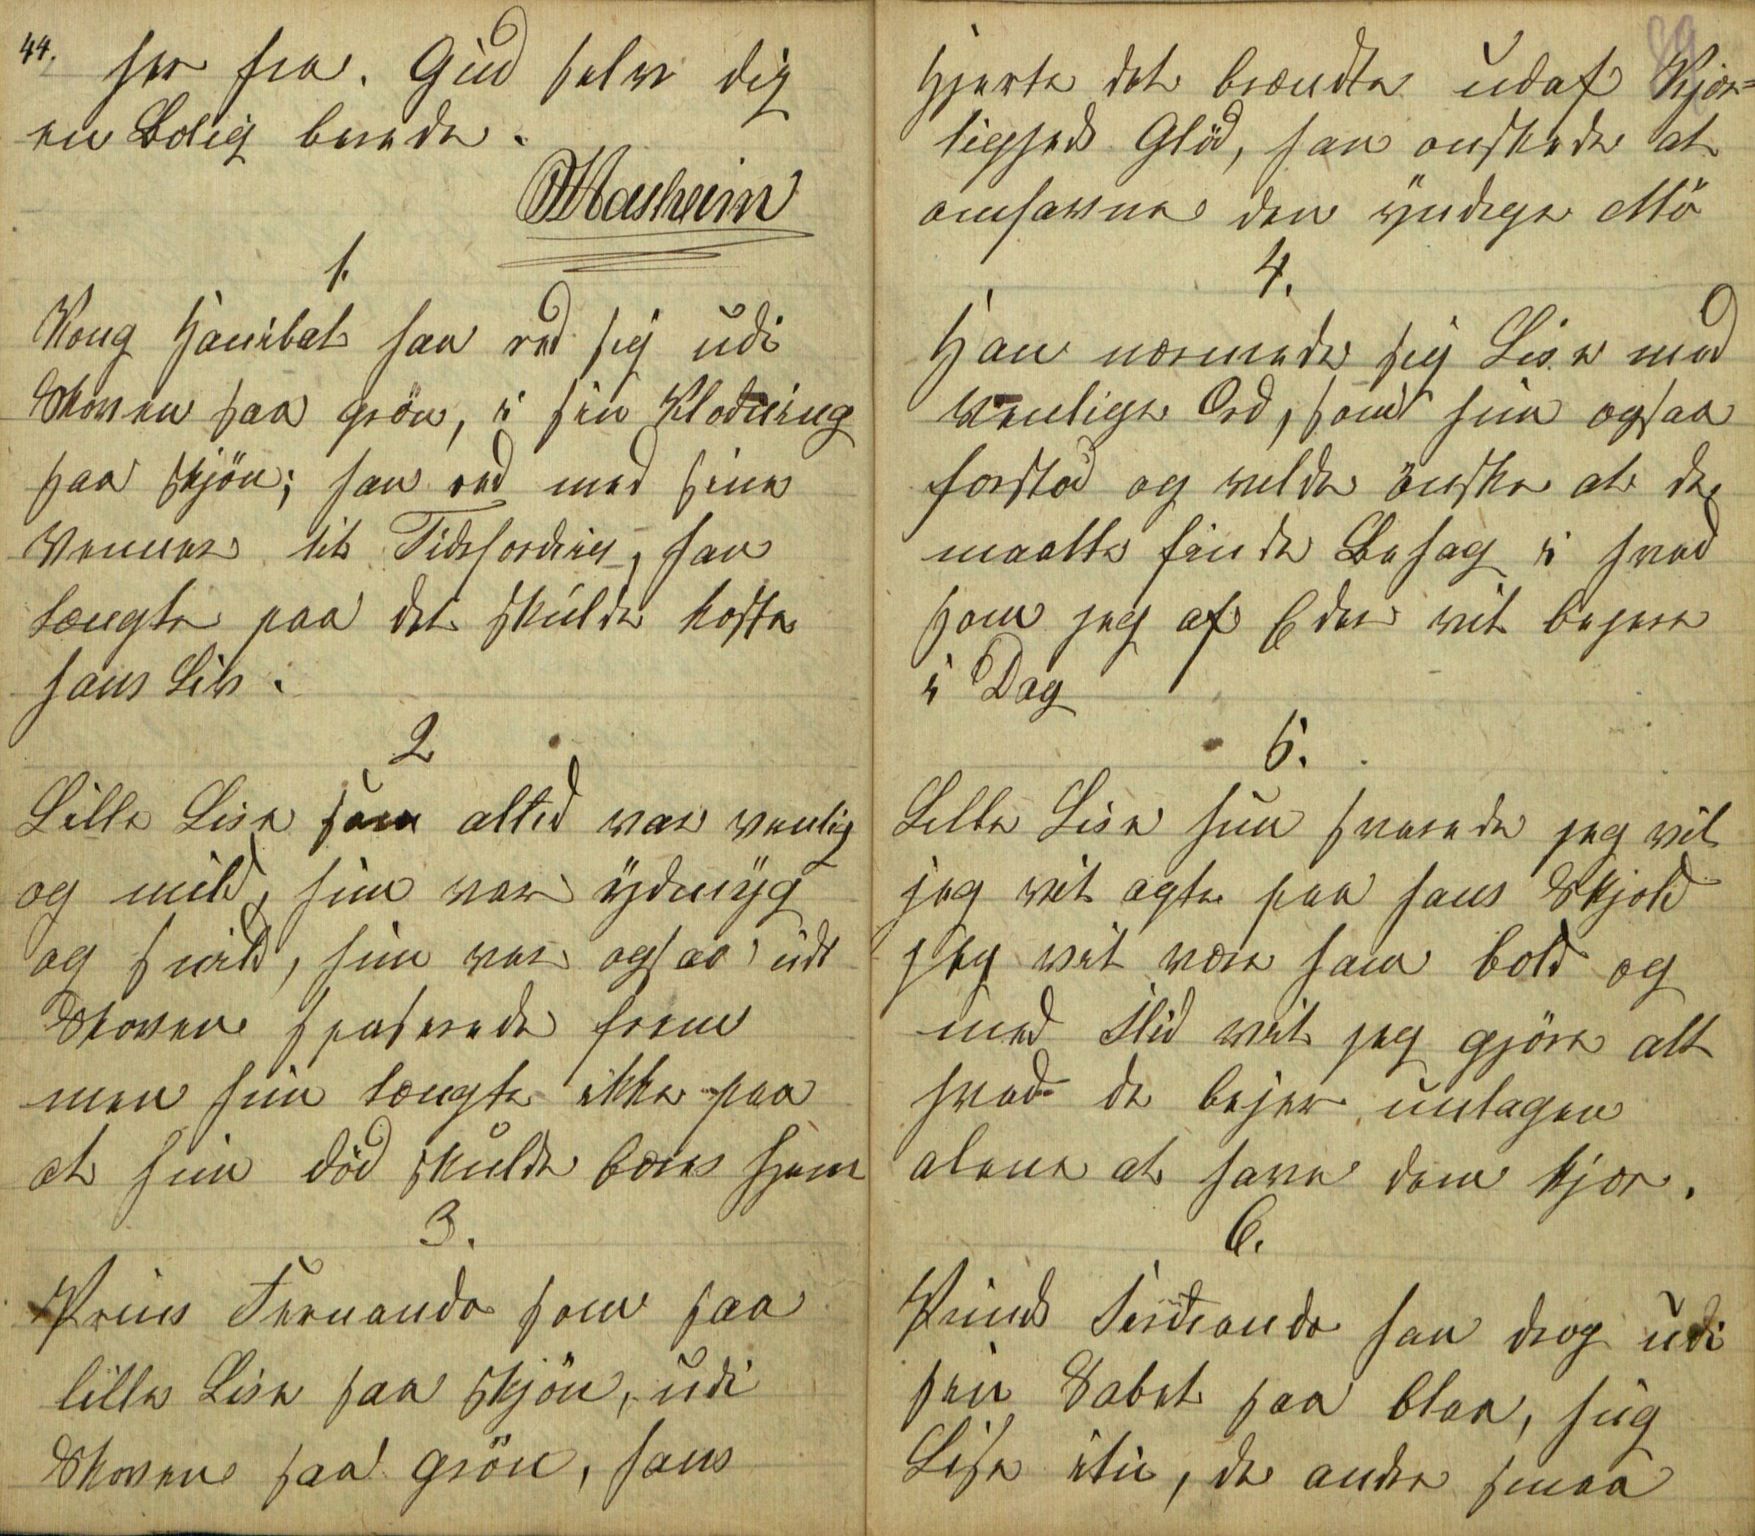 44.
her fra. Gud selv dig
en Bolig berede.
Masheim
1.
Kong Hanibal han red sig udi
Skoven saa grön, i sin Klædning
saa skjön; han red med sine
Venner til Tidsfordriv, han
tængte paa det skulde koste
hans Liv.
2
Lille Lise som altid var venlig
og mild, hun var ÿdmÿg
og snild, hun var ogsaa udi
Skoven spaserede frem
men hun tængte ikke paa
at hun död skulde bæres hjem
3.
Prins Fernando som saa
lille Lise saa skjön, udi
Skoven saa grön, hans
89
Hjerte det brændte udaf Kjær=
lighed Glöd, han onskede at
omfavne den ÿndige Mö
4.
Han nærmede sig Lise med
venlige Ord, som hun ogsaa
forstod og vilde önske at de
maatte finde Behag i hvad
som jeg af Eder vil bejere
i Dag
5.
Lille Lise hun svarede jeg vil
jeg vil agte paa hans Skjold
jeg vil være ham bold og
med Flid vil jeg gjöre alt
hvad de bejer untagen
alene at have dem kjær.
6.
Prinds Ferdnando han drog udi
sin Sabel saa blaa, hug
Lise itu, de andre smaa